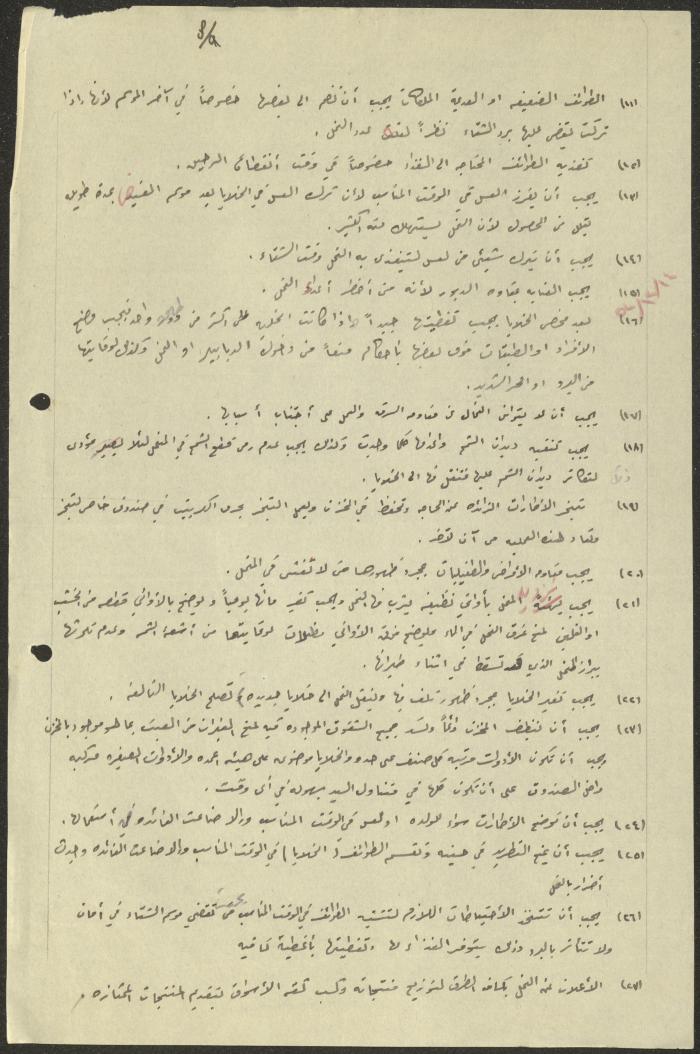 (١١) الطوائف الضعيفه او العديمة الملكات يجب أن تضم الى بعضها خصوصاً في آخر الموسم لأنها اذا
تركت يقضى عليها برد الشتاء نظراً لقلة عدد النحل .
(١٢) تغذيه الطوائف المحتاجه الى الغذاء خصوصاً في وقت أنقطاع الرحيق .
(١٣) يجب أن يفرز العسل في الوقت المناسب لأن ترك العسل في الخلايا بعد موسم الفيض بمدة طويله
يقلل من المحصول لأن النحل يستهلك منه الكثير .
(١٤) يجب أن يترك شيئ من العسل لتتغذى به النحل وقت الشتاء .
(١٥) يجب العنايه بمقاومه الدبور لأنه من أخطر أعداء النحل .
(١٦) بعد فحص الخلايا يجب تغطيتها جيداً واذا كانت الخليه على أكثر من واحد فيجب وضع
الأفراد او الطبقات فوق بعضها بأحكام منعاً من دخول الدبابير او النمل وكذلك لوقايتها
من البرد او الحر الشديد .
(١٧) يجب أن لا يتوانى النحال عن مقاومه السرقه والعمل على أجتناب أسبابها .
(١٨) يجب تنقيه ديدان الشمع واعدامها كلما وجدت وكذلك يجب عدم رمى قطع الشمع في المنحل لئلا يصير مؤدى
لتكاثر ديدان الشمع عليها فتنتقل منها الى الخلايا .
(١٩) تبخر الأطارات الزائده عن الحاجه وتحفظ في المخزن ويعمل التبخر بحرق الكبريت في صندوق خاص للتبخر
وتعاد هذه العمليه من آن لآخر .
(٢٠) يجب مقاومه الأمراض والطفيليات بمجرد ظهورها حتى لا تفشى في المنحل .
(٢١) يجب المنحل بأوانى نظيفه يشرب منها النحل ويجب تغير مائها يومياً ويوضع بالأوانى قطع من الخشب
او الفلين لمنع غرق النحل في الماء ويوضع فوق الأوانى مظلات لوقايتها من أشعة الشمس وعدم تلوثها
ببراز النحل الذي قد تسقط في اثناء طيرانها .
(٢٢) يجب تغير الخلايا بمجرد ظهور تلف بها وينقل النحل الى خلايا جديده ثم تصلح الخلايا التالفه .
(٢٣) يجب أن ينظف المخزن دائماً وتسد جميع الشقوق الموجوده فيه لمنع الفيران من العبث بما هو موجود بالمخزن
ويجب أن تكون الأدوات مرتبه كل صنف على حده والخلايا موضوعه على هيئه اعمده والأدوات الصغيره مركبه
داخل الصندوق على أن تكون كلها في متناول اليد بسهوله في أى وقت .
(٢٤) يجب أن توضع الأطارات سواء للولده او للعسل في الوقت المناسب والا ضاعت الفائده في أستعمالها .
(٢٥) يجب أن يمنع التطريد في حينه وتقسم الطوائف (الخلايا) في الوقت المناسب والا ضاعت الفائده وحدث
أضرار بالنحل
(٢٦) يجب أن تتخذ الأحتياطات اللازمه لتشتيه الطوائف في الوقت المناسب حتى تقضي موسم الشتاء في أمان
ولا تتأثر بالبرد وذلك بتوفر الغذاء لها وتغطيتها بأغطية كافيه
(٢٧) الأعلان عن النحل بكافه الطرق لتوزيع منتجاته وكسب ثقه الأسواق لتقديم المنتجات الممتازه .